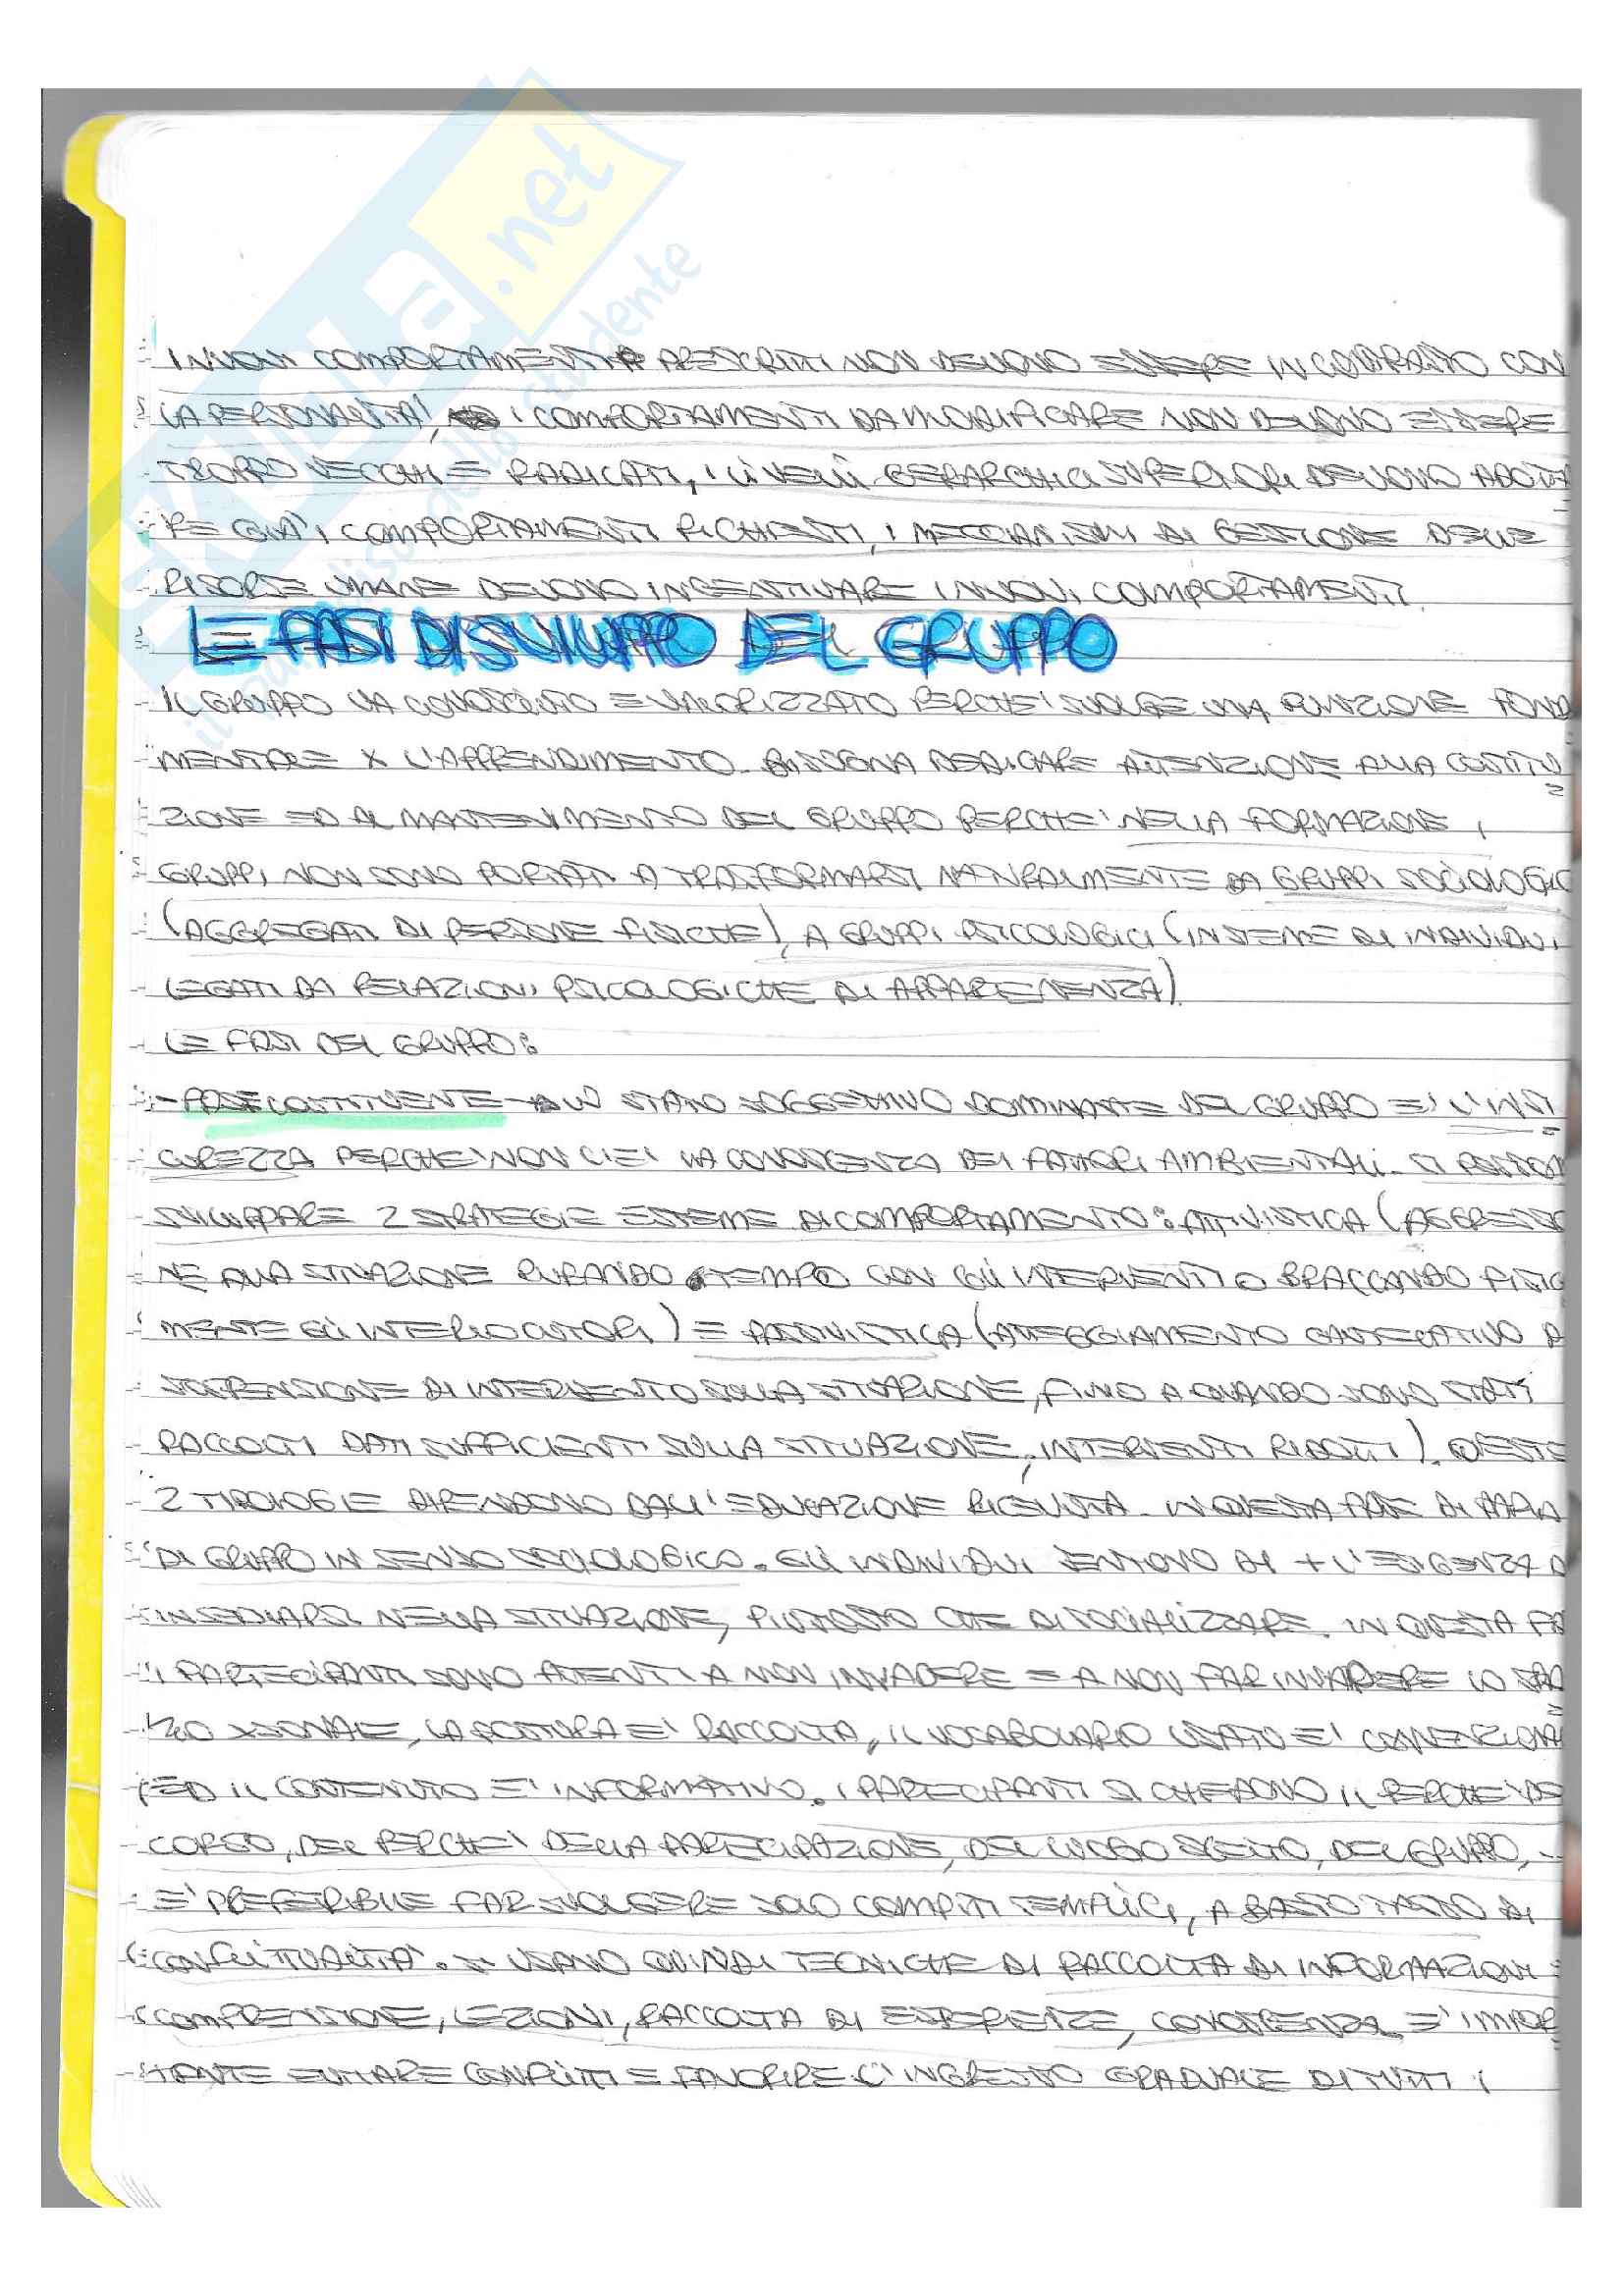 SKUOLA.net
il paradiso dello studente
I NUOVI COMPORTAMENTI PRESCRITTI NON DEVONO ESSERE IN CONTRASTO CON
LA PERSONALITA', I COMPORTAMENTI DA MODIFICARE NON DEVONO ESSERE
TROPPO VECCHI E RADICATI, I LIVELLI GERARCHICI SUPERIORI DEVONO ADOTTA
RE GIA' I COMPORTAMENTI RICHIESTI, I MECCANISMI DI GESTIONE DELLE
RISORSE UMANE DEVONO INCENTIVARE I NUOVI COMPORTAMENTI.
LE FASI DI SVILUPPO DEL GRUPPO
IL GRUPPO VA CONOSCIUTO E VALORIZZATO PERCHE' SVOLGE UNA FUNZIONE FONDA
MENTALE X L'APPRENDIMENTO. BISOGNA DEDICARE ATTENZIONE ALLA COSTITU
ZIONE ED AL MANTENIMENTO DEL GRUPPO PERCHE' NELLA FORMAZIONE I
GRUPPI NON SONO PORTATI A TRASFORMARSI NATURALMENTE DA GRUPPI SOCIOLOGIC
(AGGREGATI DI PERSONE FISICHE), A GRUPPI PSICOLOGICI (INSIEME DI INDIVIDUI
LEGATI DA RELAZIONI PSICOLOGICHE DI APPARTENENZA).
LE FASI DEL GRUPPO:
- FASE COSTITUENTE → LO STATO SOGGETTIVO DOMINANTE DEL GRUPPO E' L'INSI
CUREZZA PERCHE' NON C'E' LA CONOSCENZA DEI FATTORI AMBIENTALI. SI POSSON
SVILUPPARE 2 STRATEGIE ESTREME DI COMPORTAMENTO: ATTIVISTICA (AGGRESSIO
NE ALLA SITUAZIONE RUBANDO TEMPO CON GLI INTERVENTI O BRACCANDO FISICA
MENTE GLI INTERLOCUTORI) E PASSIVISTICA (ATTEGGIAMENTO CAUTELATIVO D
SOSPENSIONE DI INTERVENTO SULLA SITUAZIONE, FINO A QUANDO SONO STATI
RACCOLTI DATI SUFFICIENTI SULLA SITUAZIONE, INTERVENTI RIDOTTI). QUESTE
2 TIPOLOGIE DIPENDONO DALL'EDUCAZIONE RICEVUTA. IN QUESTA FASE SI PARLA
DI GRUPPO IN SENSO SOCIOLOGICO. GLI INDIVIDUI SENTONO DI + L'ESIGENZA D
INSEDIARSI NELLA SITUAZIONE, PIUTTOSTO CHE DI SOCIALIZZARE. IN QUESTA FA
I PARTECIPANTI SONO ATTENTI A NON INVADERE E A NON FAR INVADERE LO SPA
ZIO XSONALE, LA POSTURA E' RACCOLTA, IL VOCABOLARIO USATO E' CONVENZIONAL
ED IL CONTENUTO E' INFORMATIVO. I PARTECIPANTI SI CHIEDONO IL PERCHE' DE
CORSO, DEL PERCHE' DELLA PARTECIPAZIONE, DEL LUOGO SCELTO, DEL GRUPPO, ..
E' PREFERIBILE FAR SVOLGERE SOLO COMPITI SEMPLICI, A BASSO TASSO DI
CONFLITTUALITA'. SI USANO QUINDI TECNICHE DI RACCOLTA DI INFORMAZIONI:
COMPRENSIONE, LEZIONI, RACCOLTA DI ESPERIENZE, CONOSCENZA. E' IMPOR
TANTE EVITARE CONFLITTI E FAVORIRE L'INGRESSO GRADUALE DI TUTTI I